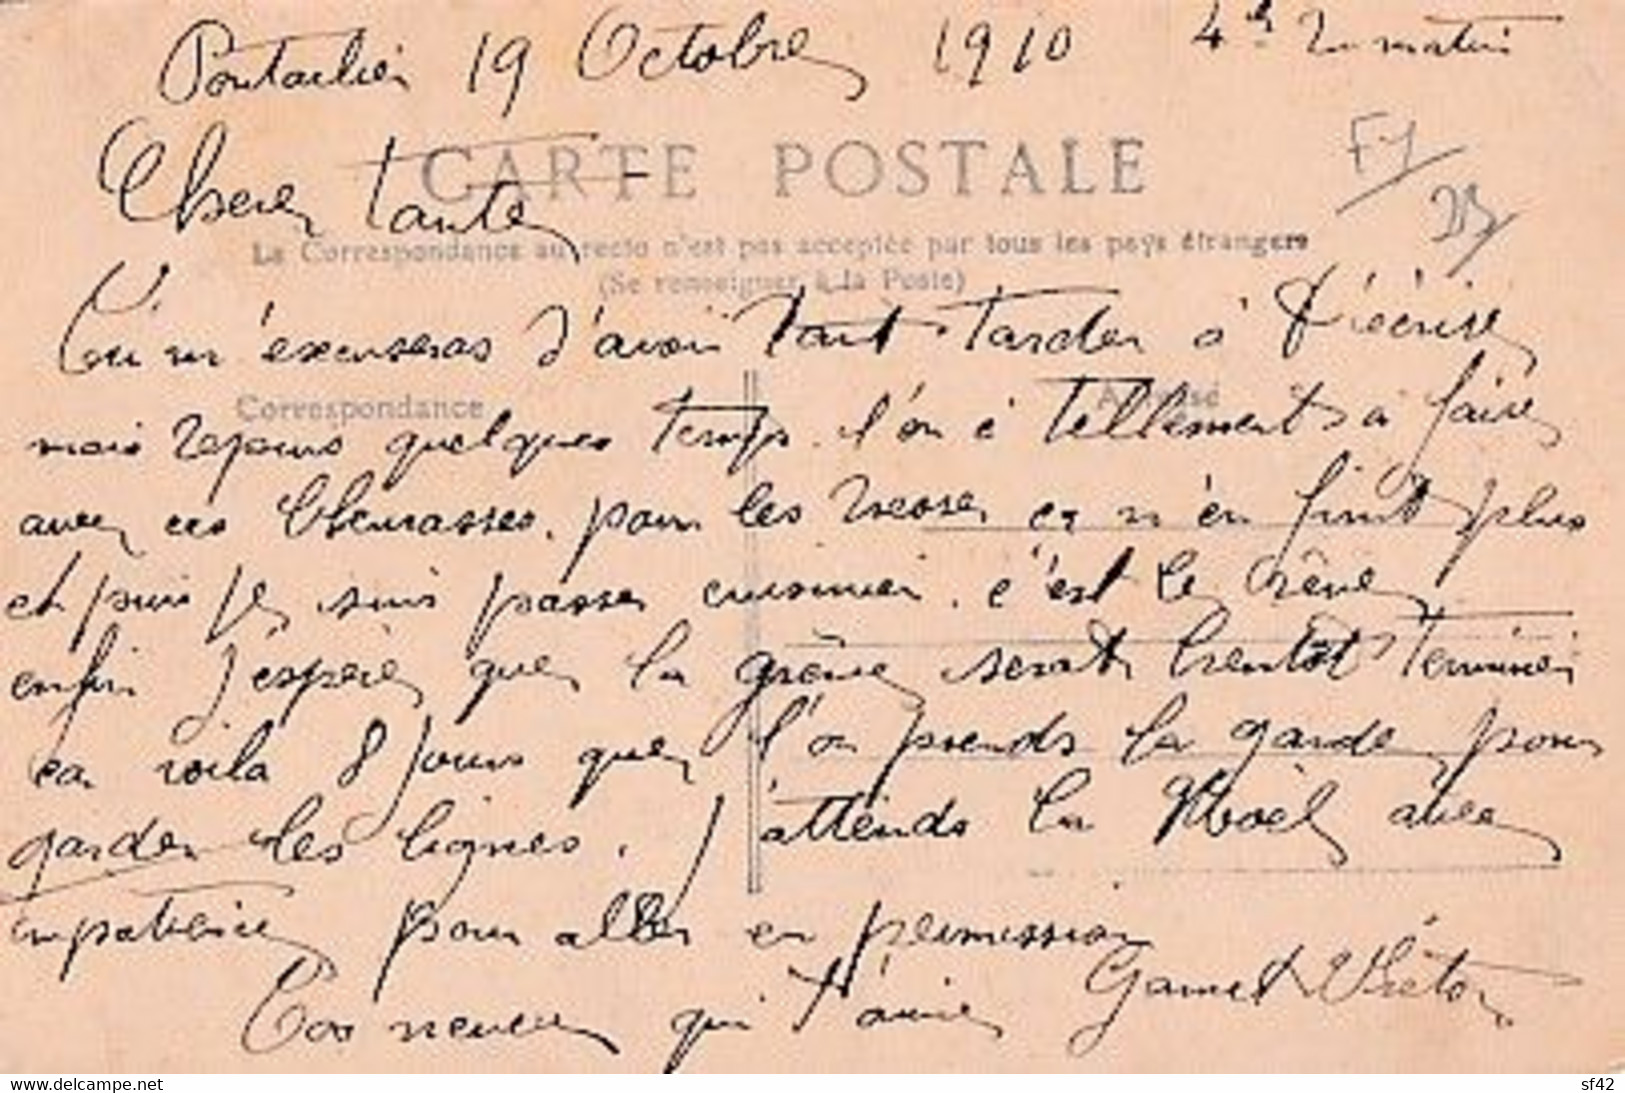 Pontarlier 19 Octobre 1910 4h du matin
F7
25
CARTE POSTALE
Cherer Tante
La Correspondance au recto n'est pas acceptée par tous les pays étrangers
(Se renseigner à la Poste)
Tu m'éxcuseras d'avoir tant Tarder à T'écrire
Correspondance Adresse
mais depuis quelques Temps. l'on à tellements a faire
avec ces Chemasses. pour les ca n'en finit plus
et puis je suis passer cuisinier. c'est le rêve
enfin j'espère que la grève serat bientôt Terminer
car voila 8 jours que l'on prends la garde pour
garder les lignes. J'attends la Nöel avec
impatience pour aller en permission
Ton neveu qui t'aime Gamet Victor
delcampe.net
sf42